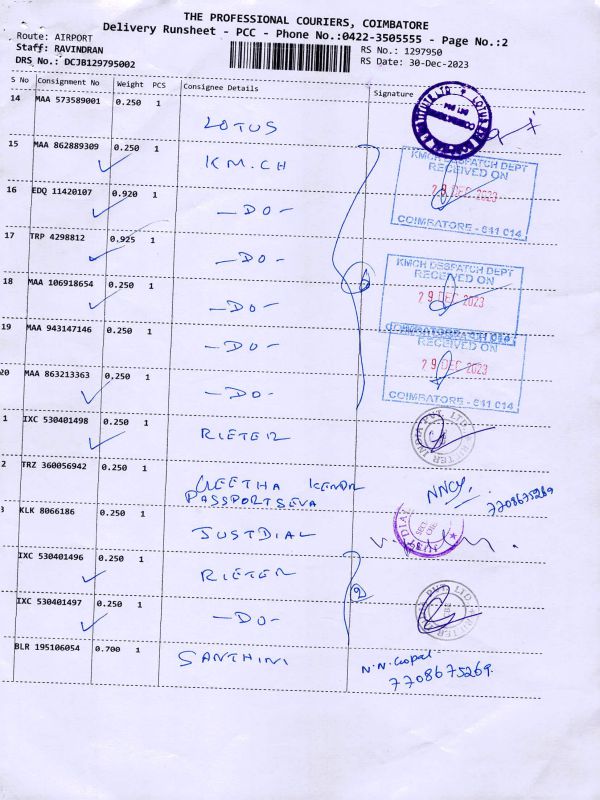 THE PROFESSIONAL COURIERS, COIMBATORE
Delivery Runsheet - PCC - Phone No.:0422-3505555 - Page No.:2
Route: AIRPORT
RS No.: 1297950
Staff: RAVINDRAN
RS Date: 30-Dec-2023
DRS No.: DCJB129795002
S No Consignment No Weight PCS Consignee Details Signature
14 MAA 573589001 0.250 1
LOTUS
15 MAA 862889309 0.250 1
KM.CH
KMCH DESPATCH DEPT
RECEIVED ON
29 DEC 2023
COIMBATORE - 641 014
16 EDQ 11420107 0.920 1
-DO-
17 TRP 4298812 0.925 1
-DO-
KMCH DESPATCH DEPT
RECEIVED ON
29 DEC 2023
18 MAA 106918654 0.250 1
-DO-
19 MAA 943147146 0.250 1
-DO-
RECEIVED ON
29 DEC 2023
COIMBATORE - 641 014
20 MAA 863213363 0.250 1
-DO-
1 IXC 530401498 0.250 1
RIETER
2 TRZ 360056942 0.250 1
GEETHA KENDR
PASSPORTSEVA
7708675269
3 KLK 8066186 0.250 1
JUSTDIAL
IXC 530401496 0.250 1
RIETER
IXC 530401497 0.250 1
-DO-
BLR 195106054 0.700 1
SANTHINI
N.N. Gopal
7708675269.